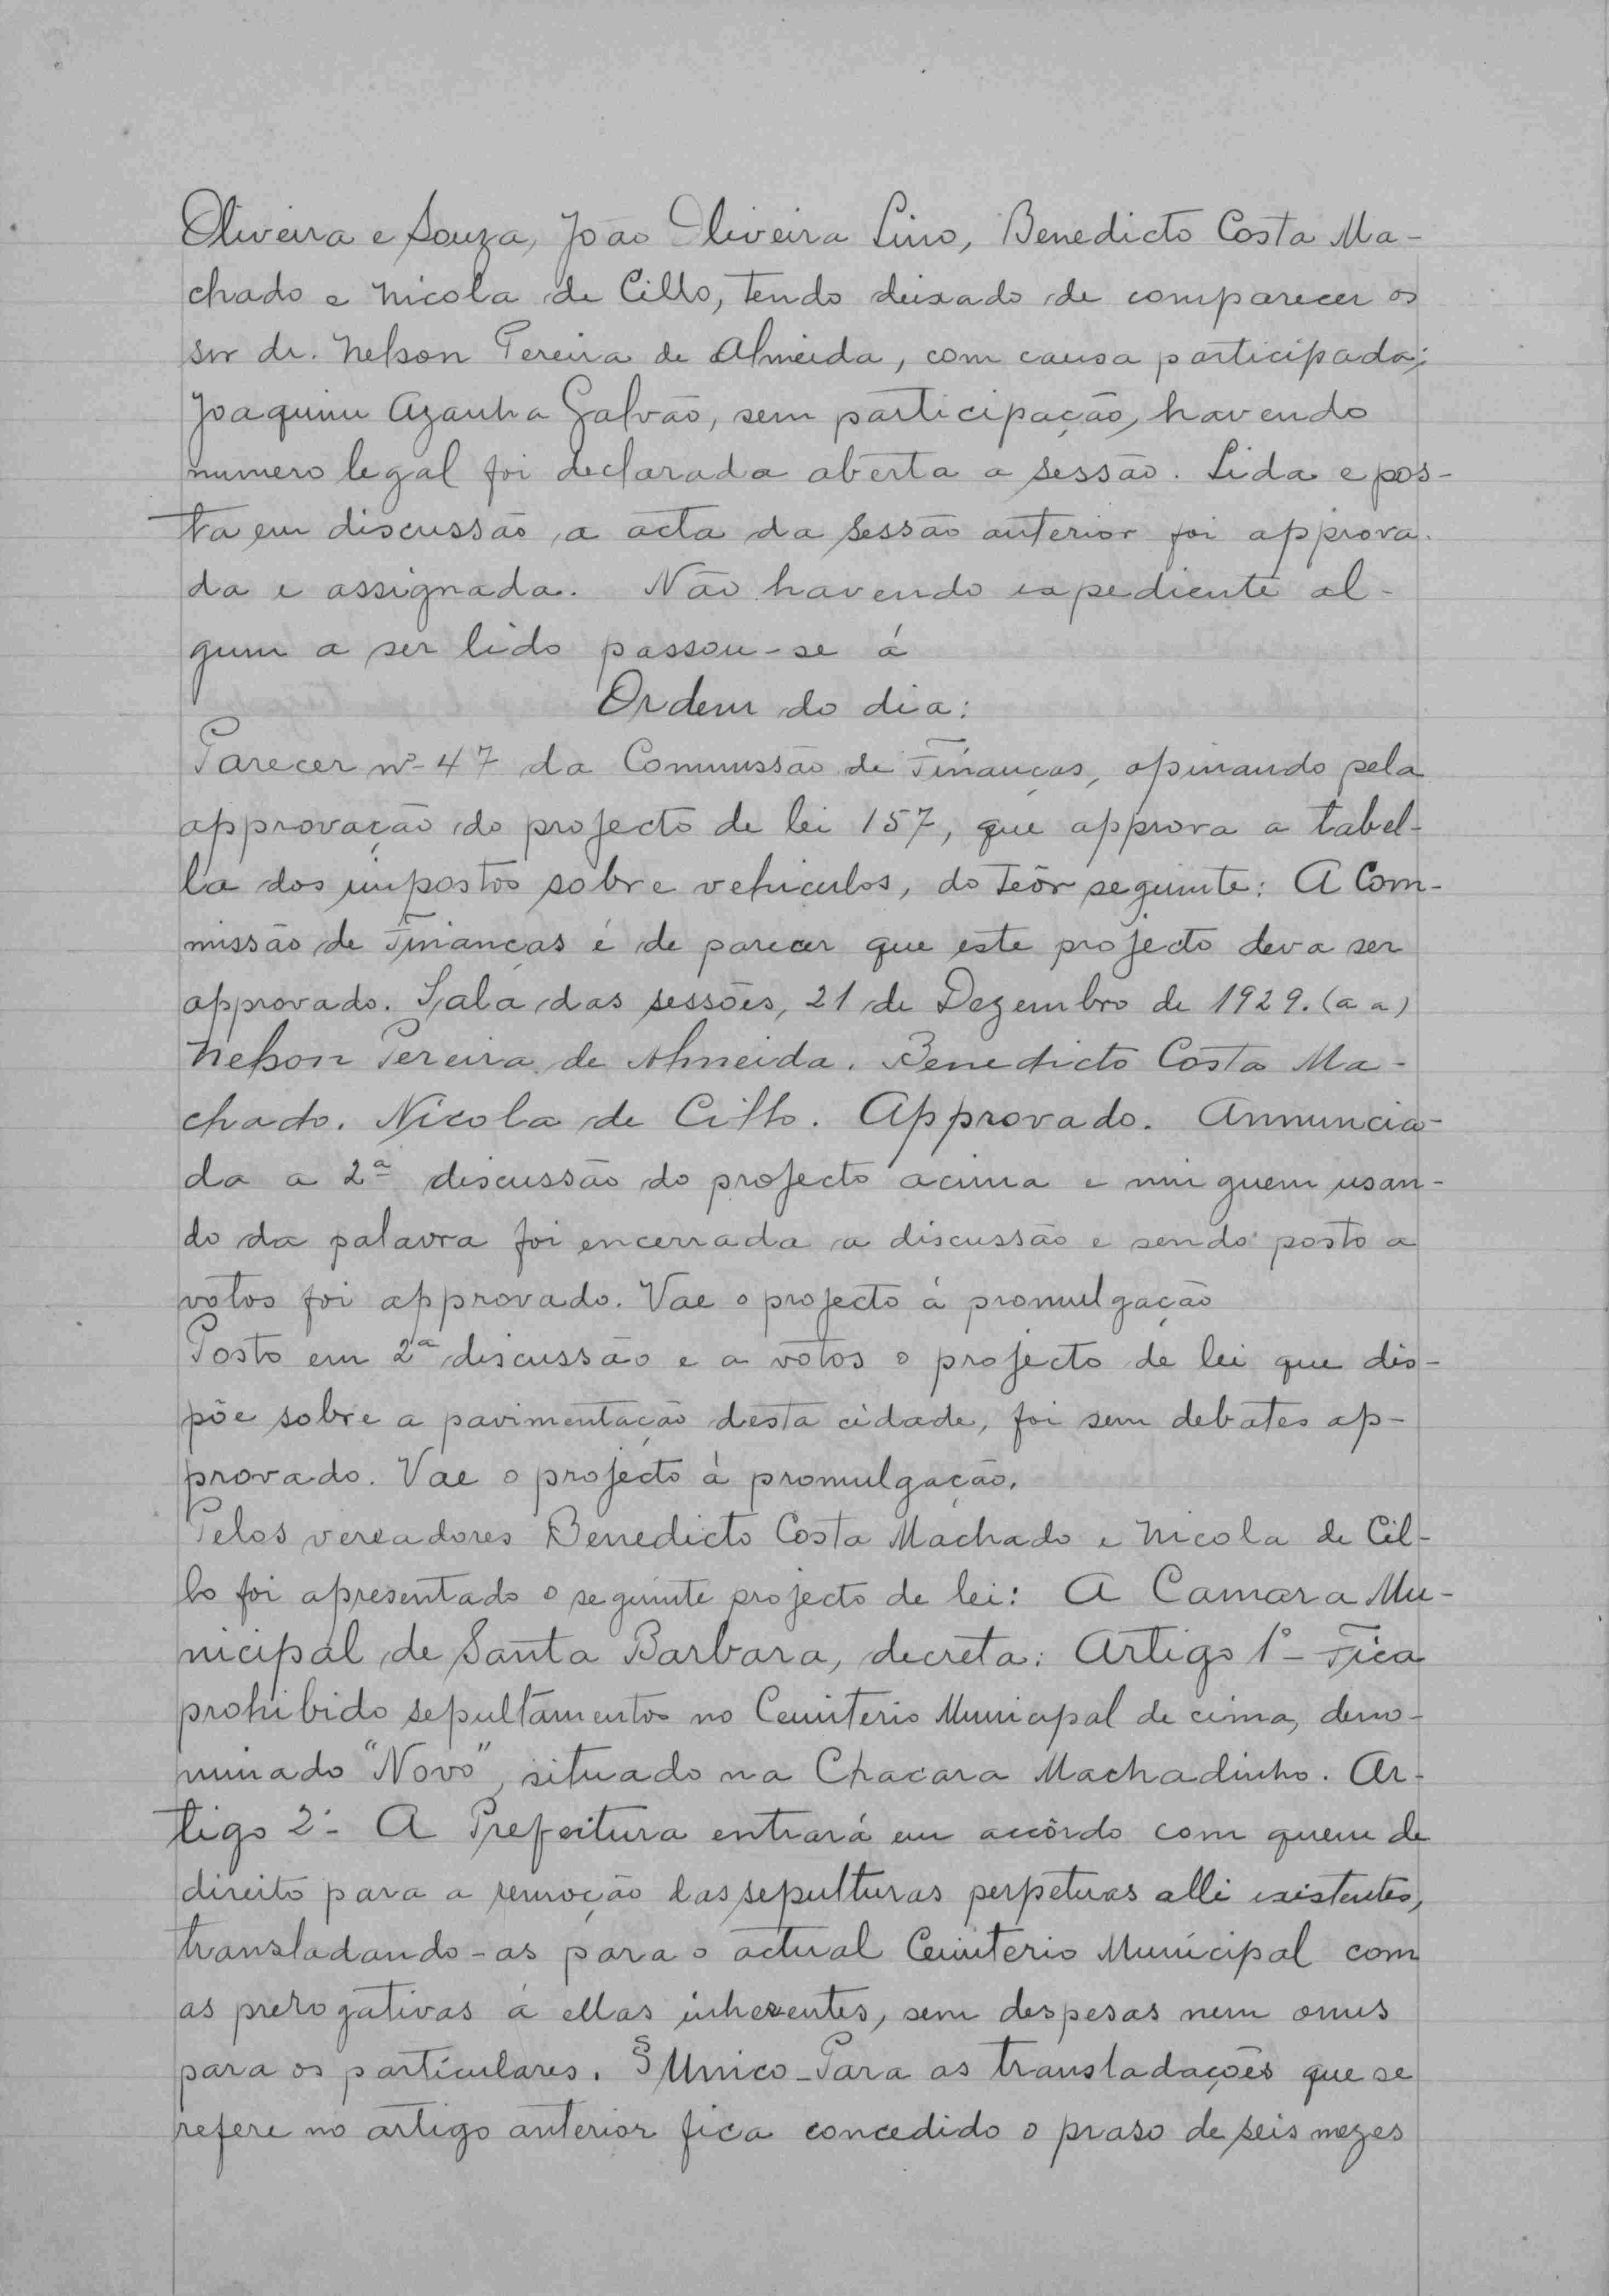 Oliveira e Souza, João Oliveira Lino, Benedicto Costa Ma-
chado e Nicola de Cillo, tendo deixado de comparecer os
snr dr. Nelson Pereira de Almeida, com causa participada;
Joaquim Azanha Galvão, sem participação, havendo
numero legal foi declarada aberta a sessão. Lida e pos-
ta em discussão a acta da sessão anterior foi approva-
da e assignada. Não havendo expediente al-
gum a ser lido passou-se á
Ordem do dia:
Parecer nº 47 da Commissão de Finanças, opinando pela
approvação do projecto de lei 157, que approva a tabel-
la dos impostos sobre vehiculos, do teôr seguinte: A Com-
missão de Finanças é de parecer que este projecto deva ser
approvado. Sala das sessões, 21 de Dezembro de 1929. (a a)
Nelson Pereira de Almeida. Benedicto Costa Ma-
chado. Nicola de Cillo. Approvado. Annuncia-
da a 2ª discussão do projecto acima e ninguem usan-
do da palavra foi encerrada a discussão e sendo posto a
votos foi approvado. Vae o projecto á promulgação
Posto em 2ª discussão e a votos o projecto de lei que dis-
põe sobre a pavimentação desta cidade, foi sem debates ap-
provado. Vae o projecto à promulgação.
Pelos vereadores Benedicto Costa Machado e Nicola de Cil-
lo foi apresentado o seguinte projecto de lei: A Camara Mu-
nicipal de Santa Barbara, decreta: Artigo 1º - Fica
prohibido sepultamentos no Cemiterio Municipal de cima, deno-
minado "Novo", situado na Chacara Machadinho. Ar-
tigo 2º - A Prefeitura entrará em accôrdo com quem de
direito para a remoção das sepulturas perpetuas alli existentes,
transladando-as para o actual Cemiterio Municipal com
as prerogativas á ellas inherentes, sem despesas nem onus
para os particulares. § Unico - Para as transladações que se
refere no artigo anterior fica concedido o praso de seis mezes